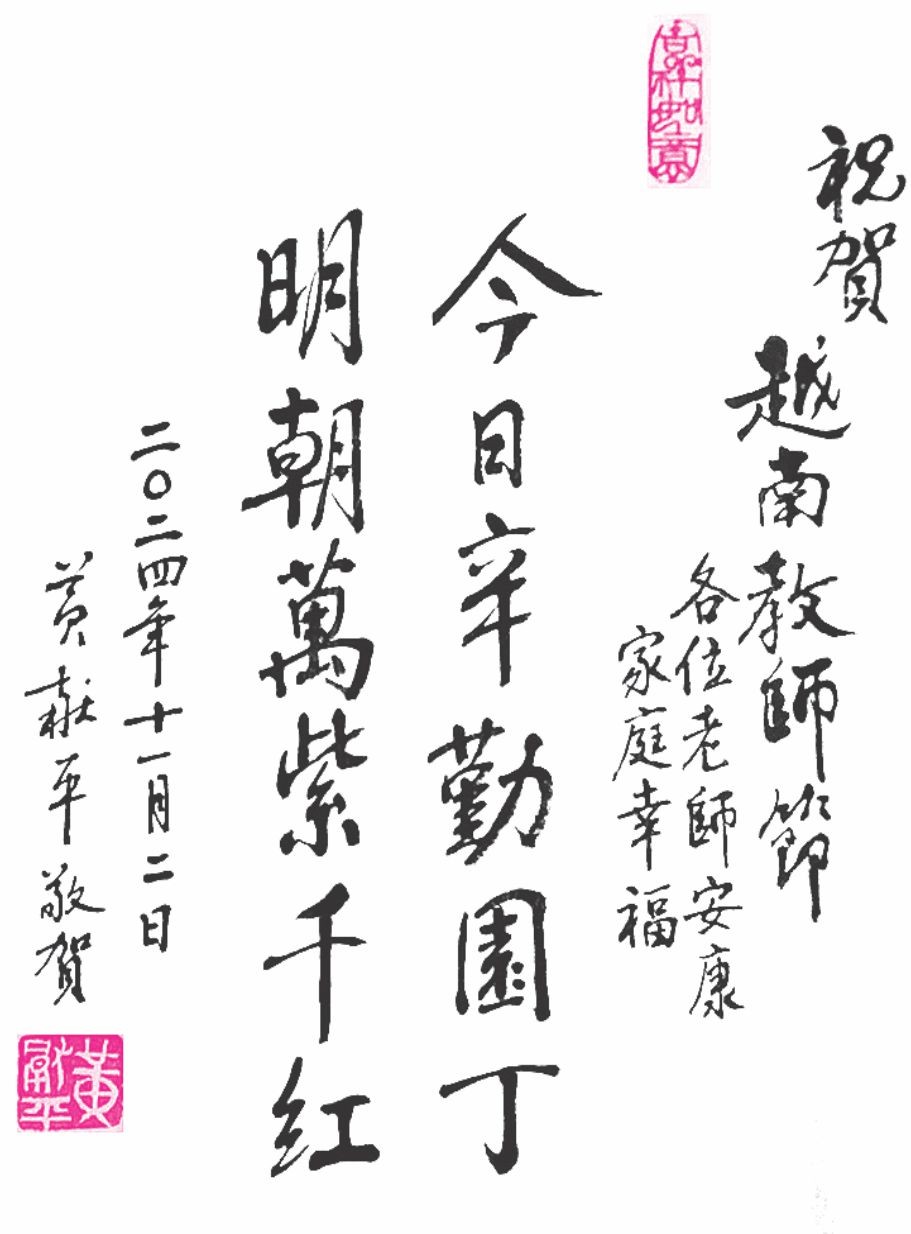 吉祥如意
祝賀
越南教師節
各位老師安康
家庭幸福
今日辛勤園丁
明朝萬紫千红
二〇二四年十一月二日
黄獻平敬賀
黃獻平